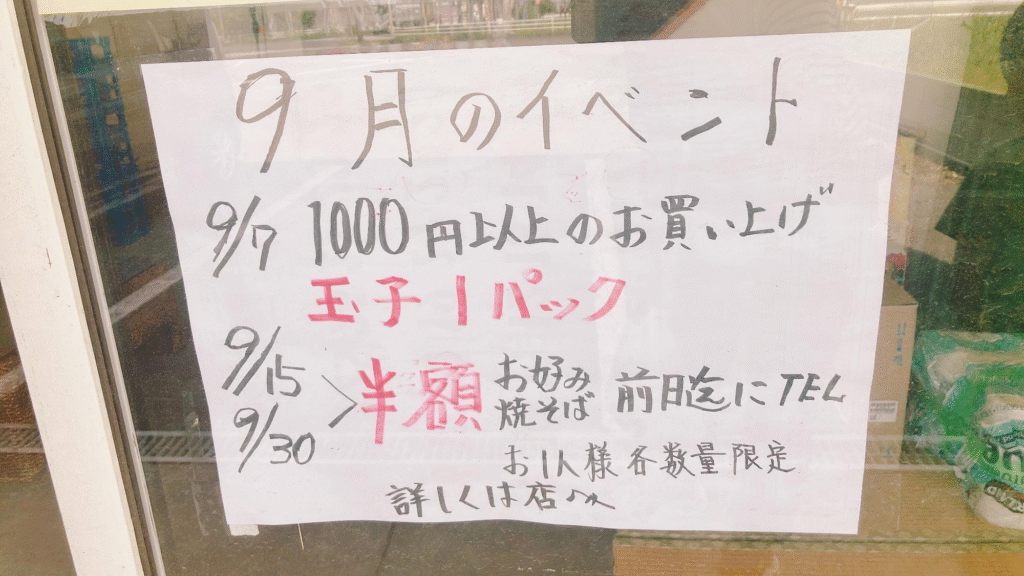 9月のイベント
9/7 1000円以上のお買い上げ
玉子1パック
9/15 9/30 > 半額 お好み 焼そば 前日迄にTEL
お1人様各数量限定
詳しくは店へ